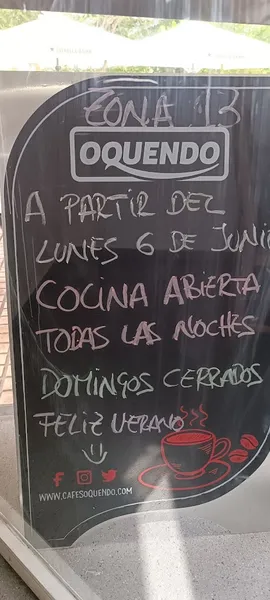 ZONA 13
OQUENDO
A PARTIR DEL
LUNES 6 DE JUNI
COCINA ABIERTA
TODAS LAS NOCHES
DOMINGOS CERRADOS
FELIZ VERANO
WWW.CAFESOQUENDO.COM